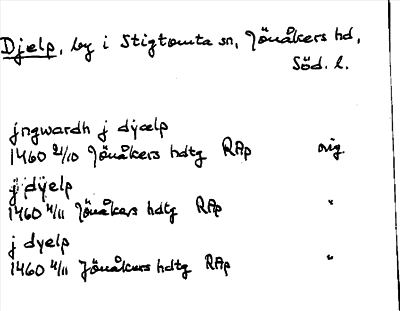 Djelp, by i Stigtomta sn, Jönåkers hd,
Söd. l.
jngwardh j dyælp
1460 21/10 Jönåkers hdtg RAp orig
j dyelp
1460 4/11 Jönåkers hdtg RAp "
j dyelp
1460 4/11 Jönåkers hdtg RAp "